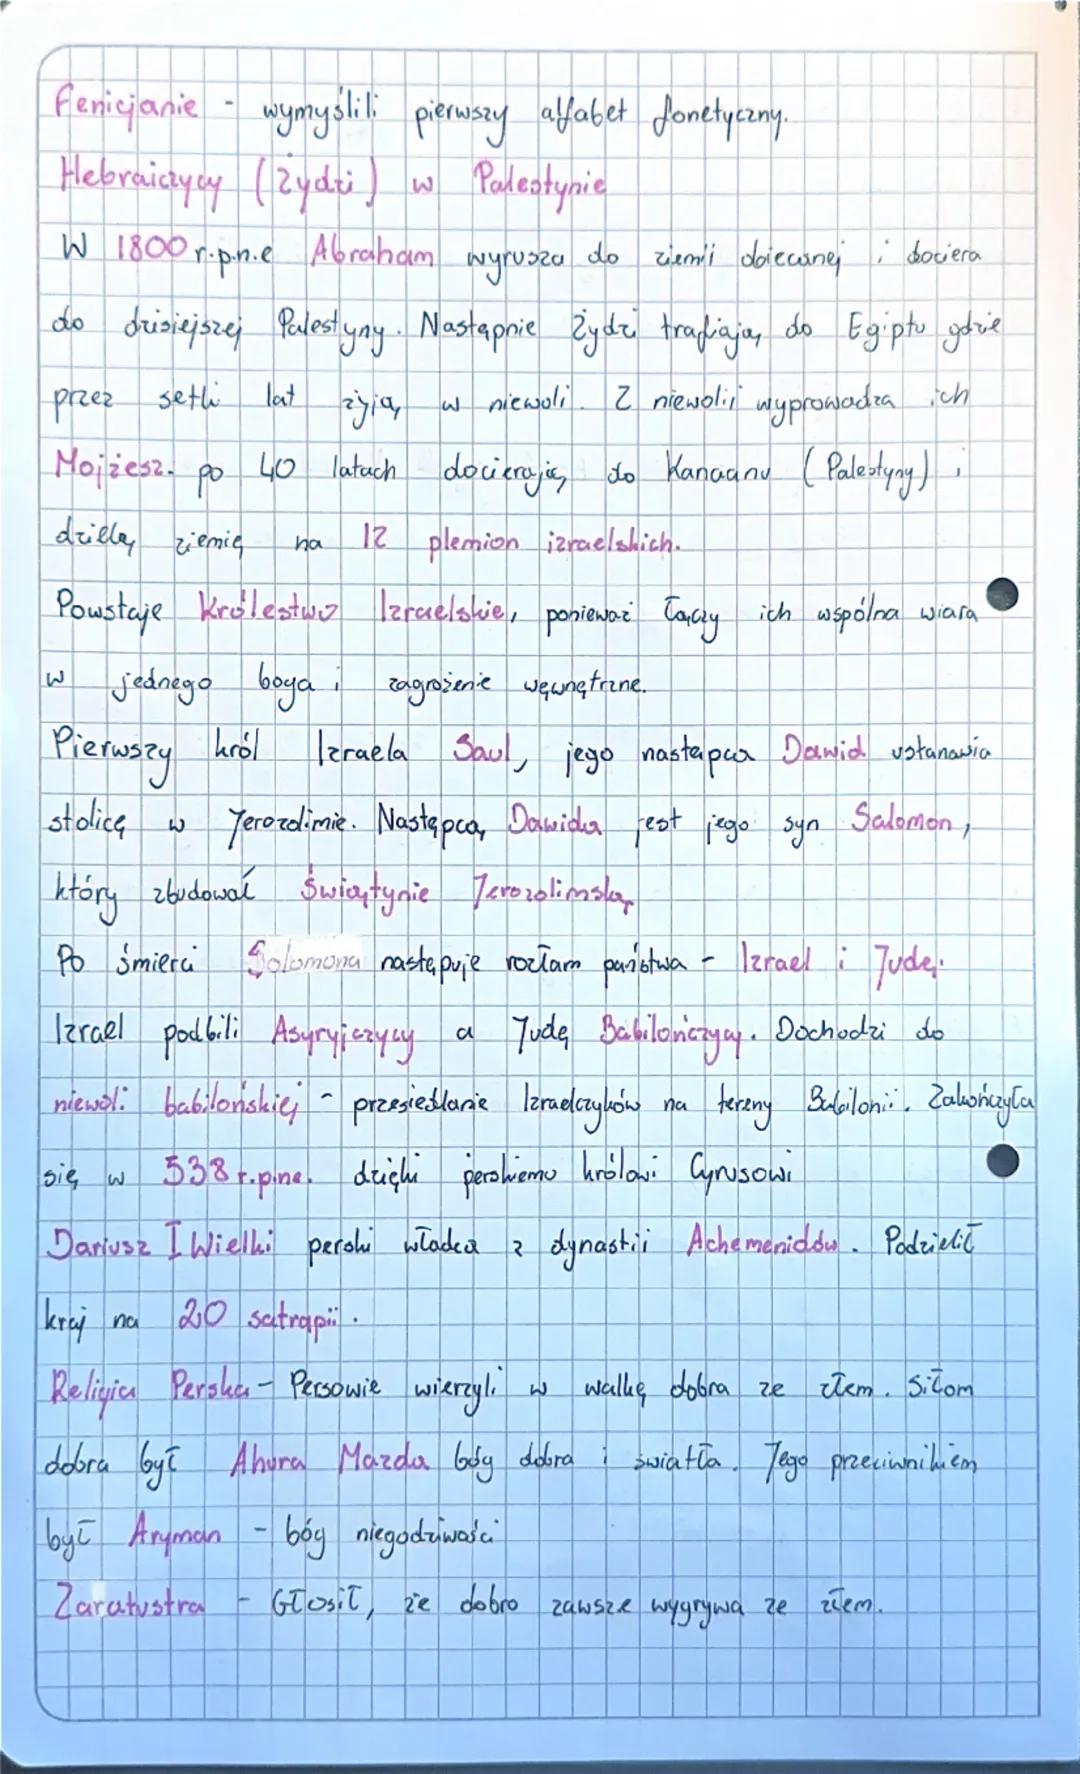 Fenicjanie - wymyślili pierwszy alfabet fonetyczny.
Hebraiczycy (Żydzi) w Palestynie
W 1800 r.p.n.e Abraham wyrusza do ziemii obiecanej i dociera
do dzisiejszej Palestyny. Następnie Żydzi trafiają do Egiptu gdzie
przez setki lat żyją w niewoli. Z niewolii wyprowadza ich
Mojżesz. po 40 latach docierają do Kanaanu (Palestyny) i
dzielą ziemię na 12 plemion izraelskich.
Powstaje Królestwo Izraelskie, ponieważ łączy ich wspólna wiara
w jednego boga i zagrożenie węwnętrzne.
Pierwszy król Izraela Saul, jego następca Dawid ustanawia
stolicę w Jerozolimie. Następcą Dawida jest jego syn Salomon,
który zbudował Świątynie Jerozolimską
Po śmierci Solomona następuje rozłam państwa - Izrael i Judę.
Izrael podbili Asyryjczycy a Judę Babilończycy. Dochodzi do
niewoli babilońskiej - przesiedlanie Izraelczyków na tereny Babilonii. Zakończyła
się w 538 r.p.ne. dzięki perskiemu królowi Cyrusowi
Dariusz I Wielki perski władca z dynastii Achemenidów. Podzielił
kraj na 20 satrapii.
Religia Perska - Persowie wierzyli w walkę dobra ze złem. Siłom
dobra był Ahura Mazda bóg dobra i światła. Jego przeciwnikiem
był Aryman - bóg niegodziwości
Zaratustra - Głosił, że dobro zawsze wygrywa ze złem.